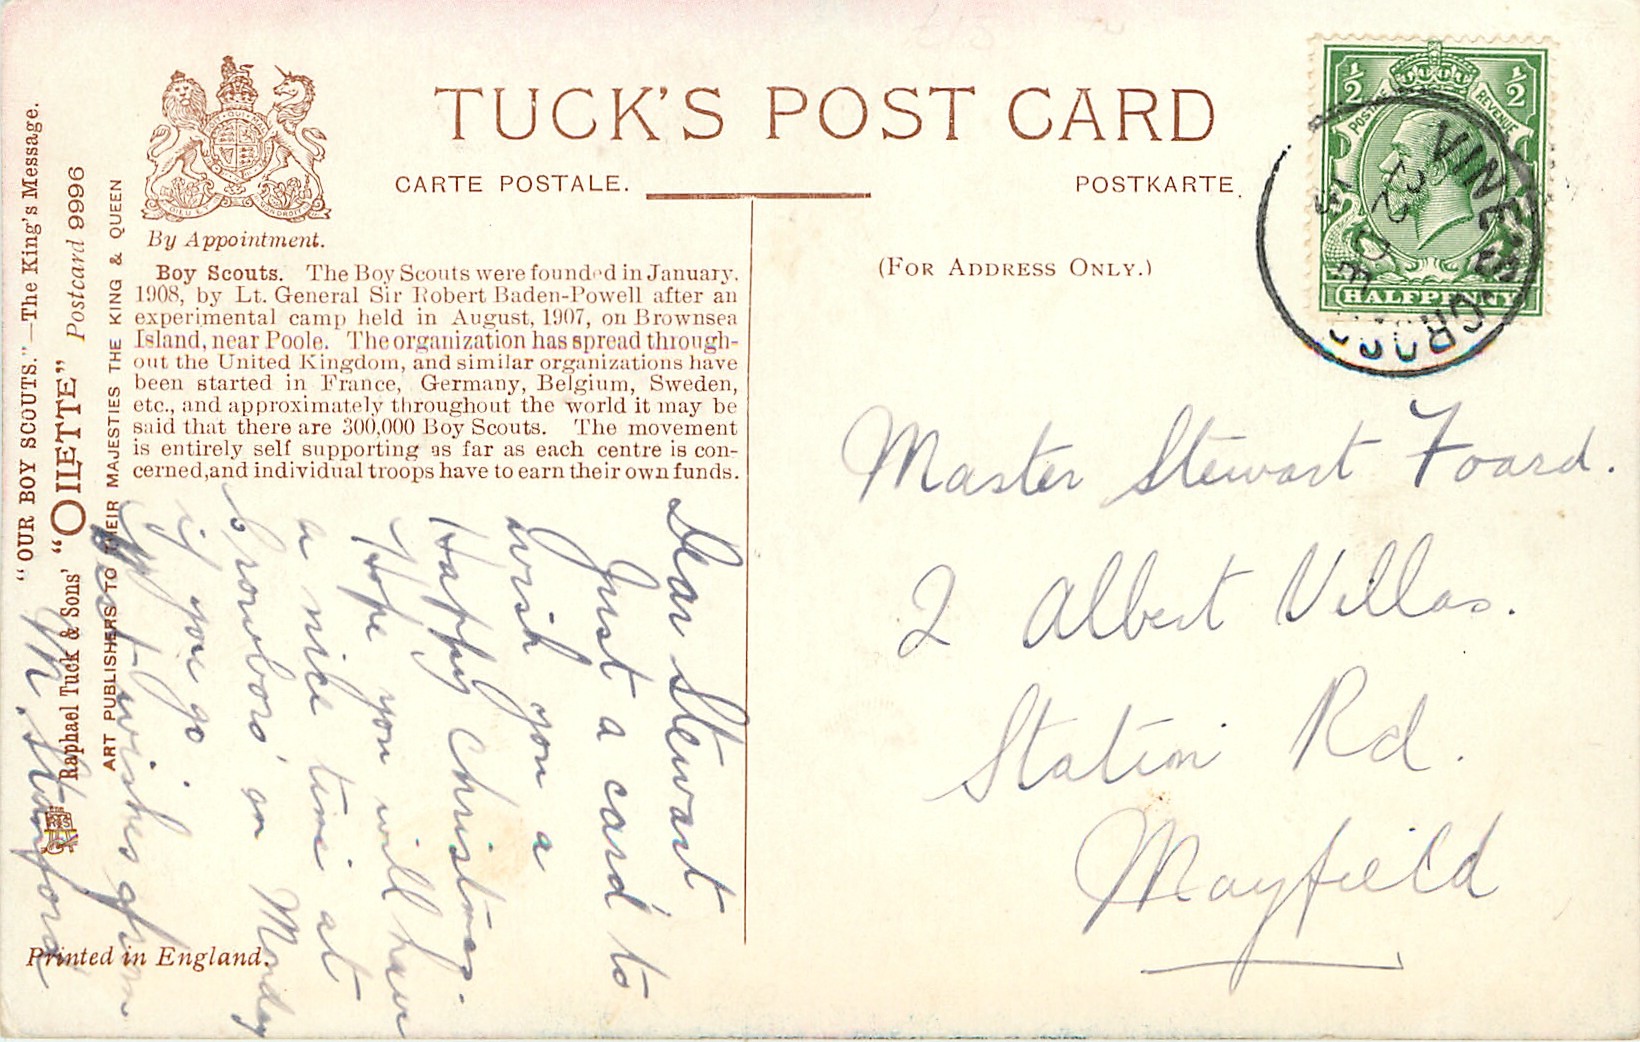 TUCK'S POST CARD
CARTE POSTALE.
POSTKARTE.
(FOR ADDRESS ONLY.)
By Appointment.
Boy Scouts. The Boy Scouts were founded in January,
1908, by Lt. General Sir Robert Baden-Powell after an
experimental camp held in August, 1907, on Brownsea
Island, near Poole. The organization has spread through-
out the United Kingdom, and similar organizations have
been started in France, Germany, Belgium, Sweden,
etc., and approximately throughout the world it may be
said that there are 300,000 Boy Scouts. The movement
is entirely self supporting as far as each centre is con-
cerned, and individual troops have to earn their own funds.
"OUR BOY SCOUTS."—The King's Message.
Raphael Tuck & Sons' "OILETTE" Postcard 9996
ART PUBLISHERS TO THEIR MAJESTIES THE KING & QUEEN
Printed in England.
Dear Stewart
Just a card to
wish you a
Happy Christmas.
Hope you will have
a nice time at
Crowboro' on Monday
if you go.
Best wishes from
M. Stanford
Master Stewart Foard.
2 Albert Villas.
Station Rd.
Mayfield
POSTAGE REVENUE
½ ½
HALFPENNY
VINE'S CROSS